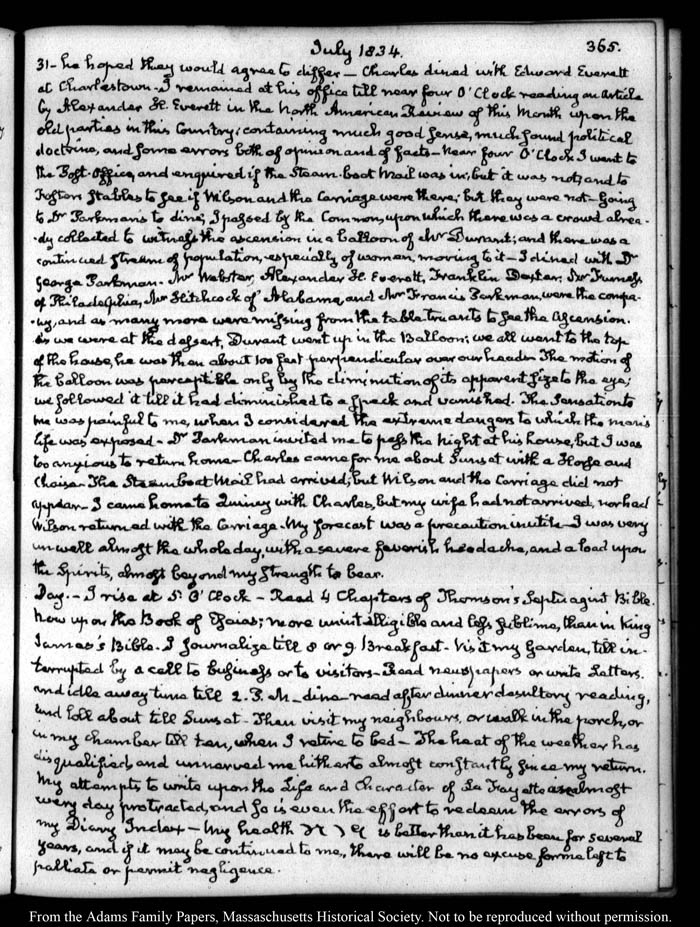 July 1834.
365.
31- he hoped they would agree to differ — Charles dined with Edward Everett
at Charlestown. I remained at his office till near four O'Clock reading an Article
by Alexander H. Everett in the North American Review of this Month upon the
old parties in this Country; containing much good sense, much sound political
doctrine, and some errors both of opinion and of facts — Near four O'Clock I went to
the Post-Office, and enquired if the Steam-boat Mail was in; but it was not; and to
Fosters Stables to see if Wilson and the Carriage were there; but they were not — Going
to Dr Parkman's to dine, I passed by the Common, upon which there was a crowd alrea-
dy collected to witness the ascension in a balloon of Mr Durant; and there was a
continued stream of population, especially of women, moving to it — I dined with Dr
George Parkman. Mr Webster, Alexander H. Everett, Franklin Dexter, Mr Furness
of Philadelphia, Mr Hitchcock of Alabama, and Mr Francis Parkman, were the compa-
ny, and as many more were missing from the table truants to see the Ascension.
As we were at the dessert, Durant went up in the Balloon; we all went to the top
of the house, he was then about 100 feet perpendicular over our heads. The motion of
the balloon was perceptible only by the diminution of its apparent size to the eye;
we followed it till it had diminished to a speck and vanished. The sensation to
me was painful to me, when I considered the extreme danger to which the man's
life was exposed — Dr Parkman invited me to pass the night at his house, but I was
too anxious to return home — Charles came for me about Sunset with a Horse and
Chaise — The Steamboat Mail had arrived; but Wilson and the Carriage did not
appear — I came home to Quincy with Charles, but my wife had not arrived, nor had
Wilson returned with the Carriage. My forecast was a precaution inutile — I was very
unwell almost the whole day, with a severe feverish headache, and a load upon
the Spirits, almost beyond my strength to bear.
Day. — I rise at 5. O'Clock — Read 4 Chapters of Thomson's Septuagint Bible.
Now upon the Book of Esaias; more unintelligible and less sublime, than in King
James's Bible. I journalize till 8 or 9. Breakfast. Visit my Garden, till in-
terrupted by a call to business or to visitors — Read newspapers or write Letters.
and idle away time till 2. P. M. dine — read after dinner desultory reading,
and loll about till Sunset — Then visit my neighbours, or walk in the porch, or
in my chamber till ten, when I retire to bed — The heat of the weather has
disqualified, and unnerved me hitherto almost constantly since my return.
My attempts to write upon the Life and Character of La Fayette is almost
every day protracted, and so is even the effort to redeem the errors of
my Diary Index — My health is better than it has been for several
years, and if it may be continued to me, there will be no excuse for me left to
palliate or permit negligence.
From the Adams Family Papers, Massachusetts Historical Society. Not to be reproduced without permission.